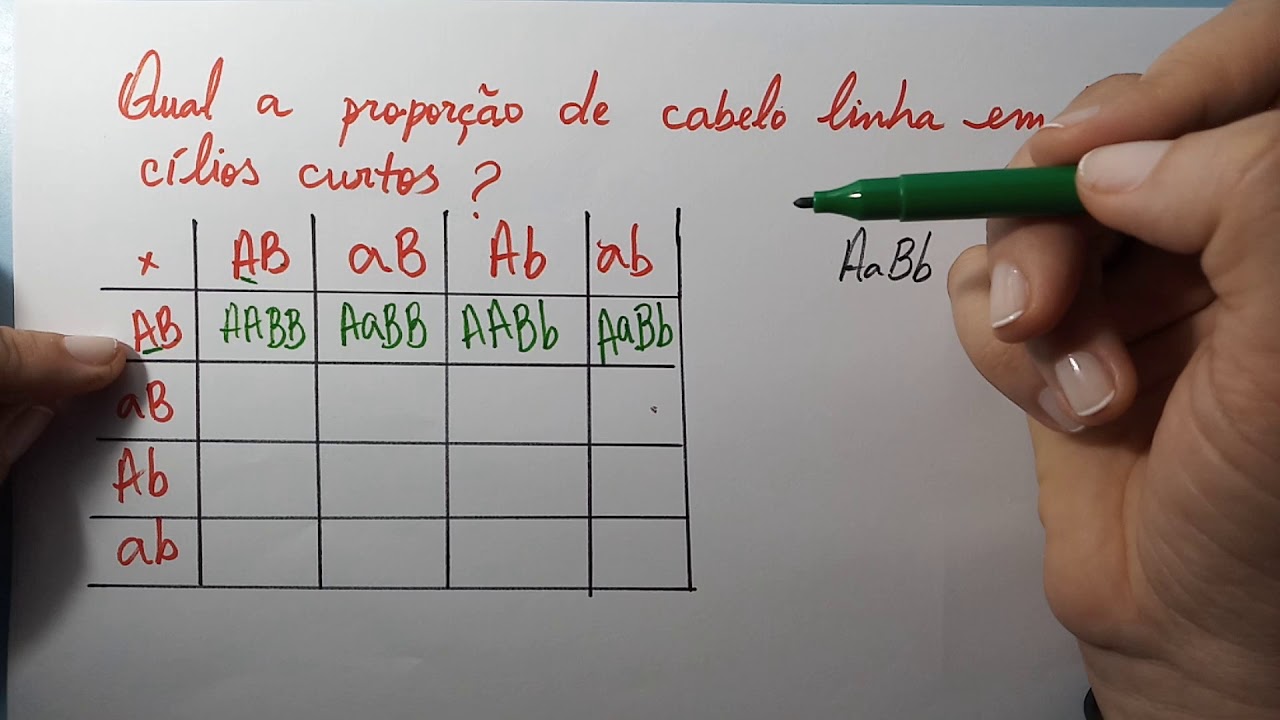 Qual a proporção de cabelo linha em
cílios curtos ?
x AB aB Ab ab
AB AABB AaBB AABb AaBb
aB
Ab
ab
AaBb